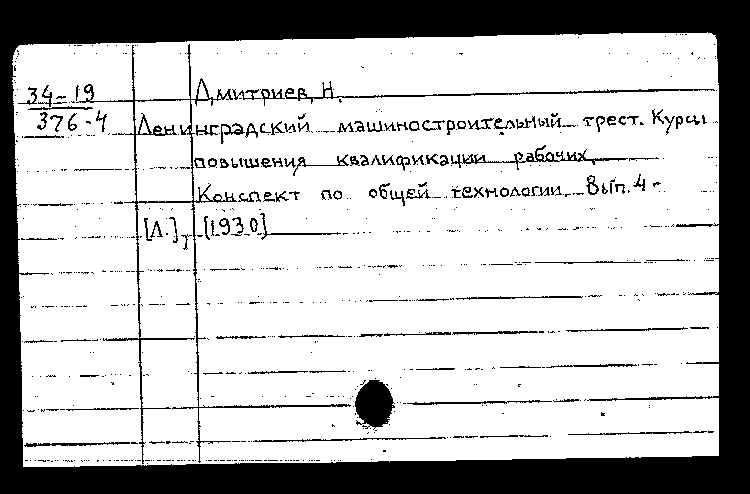 34-19 Дмитриев, Н.
376-4 Ленинградский машиностроительный трест. Курсы
повышения квалификации рабочих.
Конспект по общей технологии. Вып. 4-
[Л.], [1930]